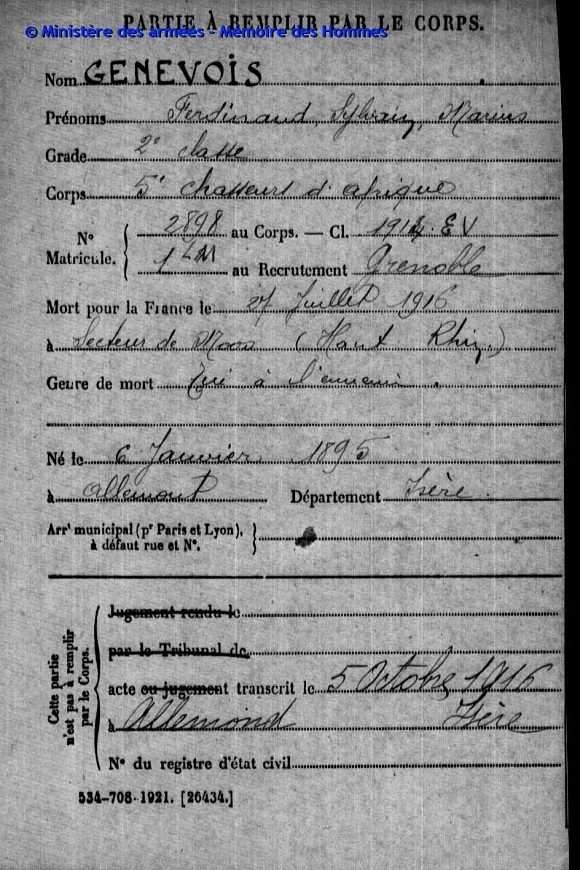 PARTIE À REMPLIR PAR LE CORPS.
© Ministère des armées - Mémoire des Hommes
Nom GENEVOIS
Prénoms Ferdinand, Sylvain, Marius
Grade 2e classe
Corps 5e chasseurs d'afrique
No Matricule. { 2898 au Corps. — Cl. 1914. EV
1 LM au Recrutement Grenoble
Mort pour la France le 27 Juillet 1916
à Secteur de Moos (Haut Rhin)
Genre de mort Tué à l'ennemi.
Né le 6 Janvier 1895
à allemont Département Isère.
Arrt municipal (pr Paris et Lyon), à défaut rue et No. }
Cette partie n'est pas à remplir par le Corps.
Jugement rendu le
par le Tribunal de
acte ou jugement transcrit le 5 Octobre 1916
à Allemond Isère
No du registre d'état civil
534-708-1921. [26434.]